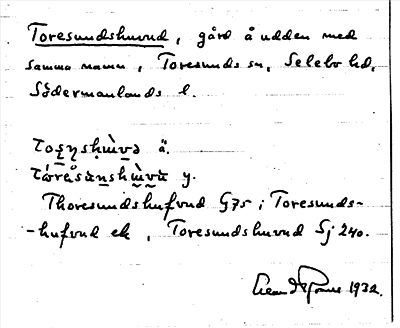 Toresundshuvud, gård å udden med
samma namn, Toresunds sn, Selebo hd,
Södermanlands l.
ä.
y.
Thoresundshufvud G75; Toresunds-
-hufvud ek, Toresundshuvud Sj 240.
1932.